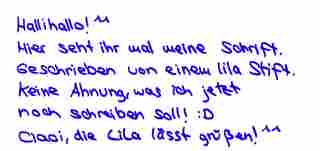 Hallihallo! ^^
Hier seht ihr mal meine Schrift.
Geschrieben von einem lila Stift.
Keine Ahnung, was ich jetzt
noch schreiben soll! :D
Ciaoi, die Lila lässt grüßen! ^^